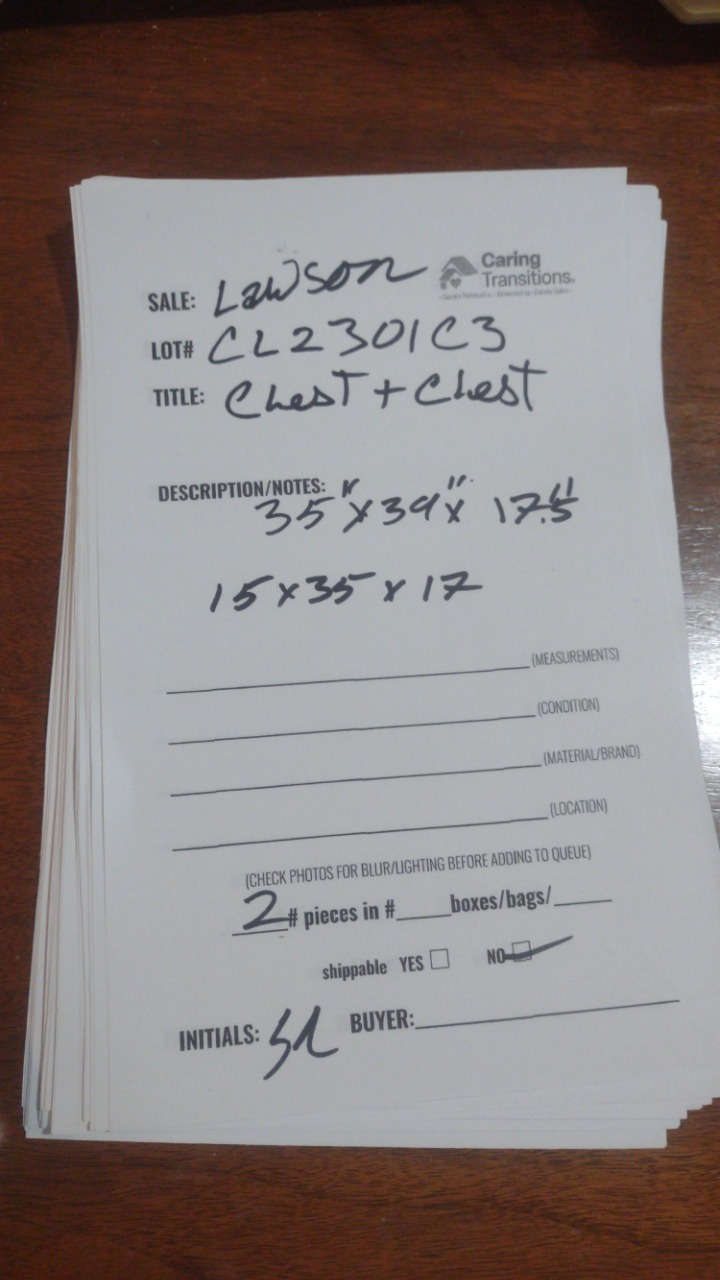 Caring
Transitions.
SALE: Lawson
LOT# CL2301C3
TITLE: Chest + Chest
DESCRIPTION/NOTES:
35" x 39" x 17.5"
15 x 35 x 17
(MEASUREMENTS)
(CONDITION)
(MATERIAL/BRAND)
(LOCATION)
(CHECK PHOTOS FOR BLUR/LIGHTING BEFORE ADDING TO QUEUE)
2 # pieces in #____boxes/bags/____
shippable YES ☐ NO ☑
INITIALS: SL BUYER:____